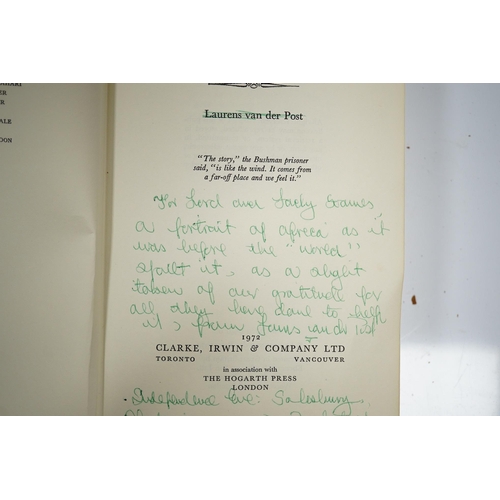 HARI
ER
ER
ALE
DON
Laurens van der Post
"The story," the Bushman prisoner
said, "is like the wind. It comes from
a far-off place and we feel it."
For Lord and Lady Soames
a portrait of africa as it
was before the "world"
spoilt it, as a slight
token of our gratitude for
all they have done to help
it, from Laurens van der Post
1972
CLARKE, IRWIN & COMPANY LTD
TORONTO VANCOUVER
in association with
THE HOGARTH PRESS
LONDON
Independence Eve: Salisbury.